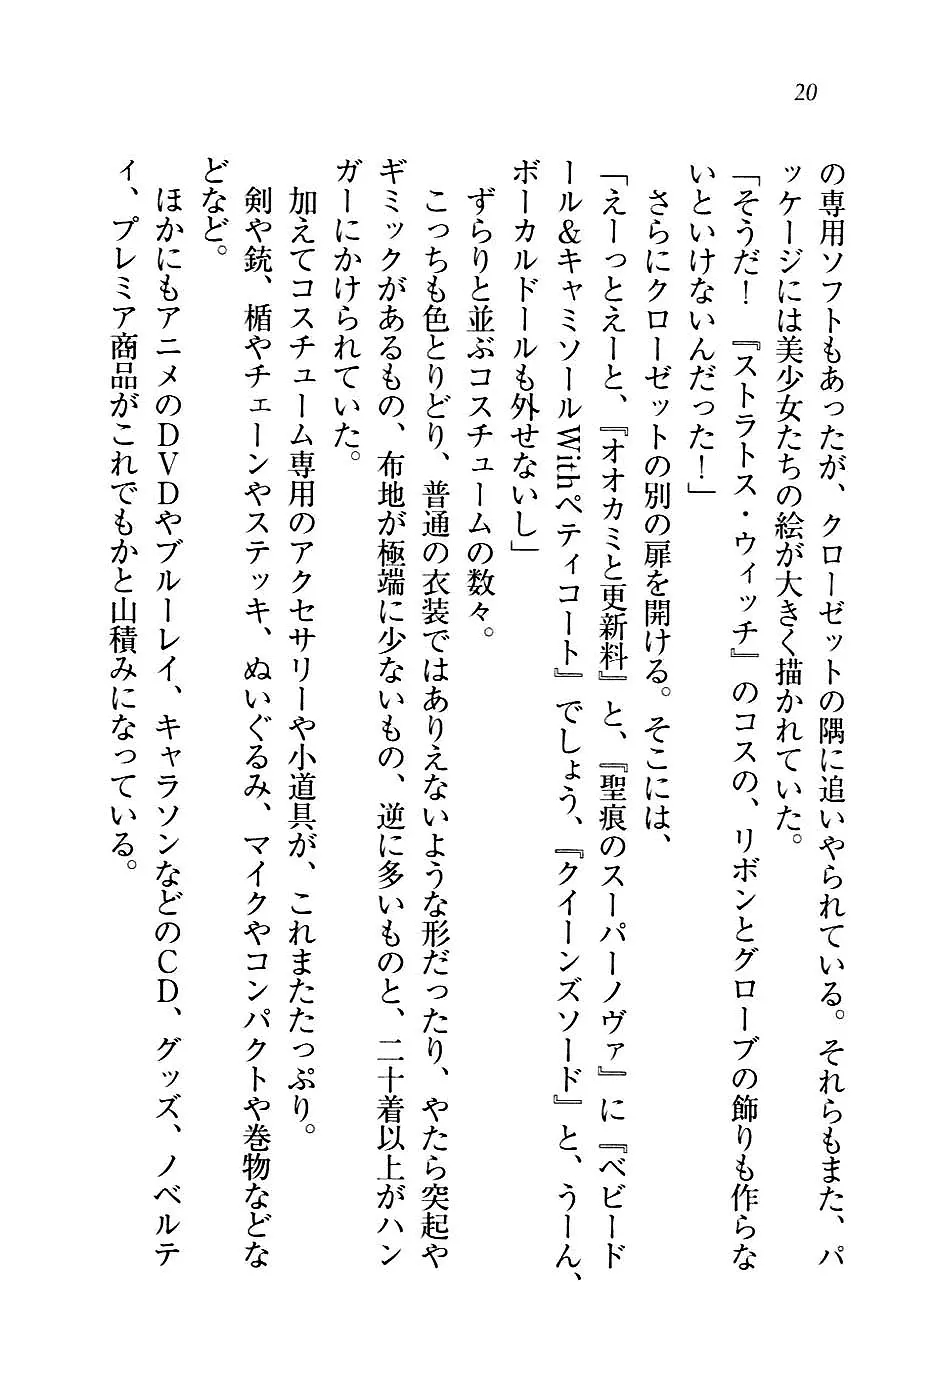 20
の専用ソフトもあったが、クローゼットの隅に追いやられている。それらもまた、パ
ッケージには美少女たちの絵が大きく描かれていた。
「そうだ！　『ストラトス・ウィッチ』のコスの、リボンとグローブの飾りも作らな
いといけないんだった！」
さらにクローゼットの別の扉を開ける。そこには、
「えーっとえーと、『オオカミと更新料』と、『聖痕のスーパーノヴァ』に『ベビード
ール＆キャミソールWithペティコート』でしょう、『クイーンズソード』と、うーん、
ボーカルドールも外せないし」
ずらりと並ぶコスチュームの数々。
こっちも色とりどり、普通の衣装ではありえないような形だったり、やたら突起や
ギミックがあるもの、布地が極端に少ないもの、逆に多いものと、二十着以上がハン
ガーにかけられていた。
加えてコスチューム専用のアクセサリーや小道具が、これまたたっぷり。
剣や銃、楯やチェーンやステッキ、ぬいぐるみ、マイクやコンパクトや巻物などな
どなど。
ほかにもアニメのＤＶＤやブルーレイ、キャラソンなどのＣＤ、グッズ、ノベルテ
ィ、プレミア商品がこれでもかと山積みになっている。